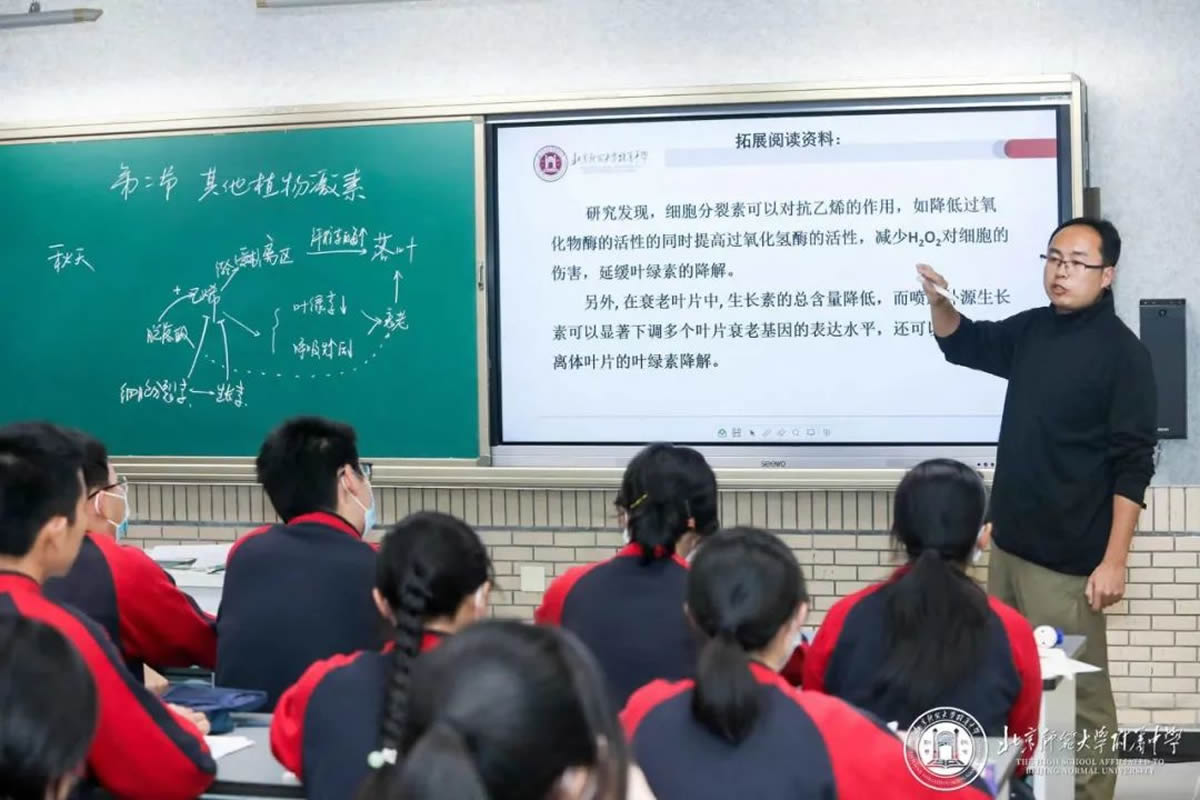 第二节 其他植物激素
秋天
脱落酸
乙烯
+
离区
落叶
叶绿素↓
呼吸
衰老
细胞分裂素
生长素
北京师范大学附属中学
拓展阅读资料：
研究发现，细胞分裂素可以对抗乙烯的作用，如降低过氧
化物酶的活性的同时提高过氧化氢酶的活性，减少H₂O₂对细胞的
伤害，延缓叶绿素的降解。
另外, 在衰老叶片中, 生长素的总含量降低，而喷 源生长
素可以显著下调多个叶片衰老基因的表达水平，还可
离体叶片的叶绿素降解。
seewo
北京师范大学附属中学
THE HIGH SCHOOL AFFILIATED TO
BEIJING NORMAL UNIVERSITY